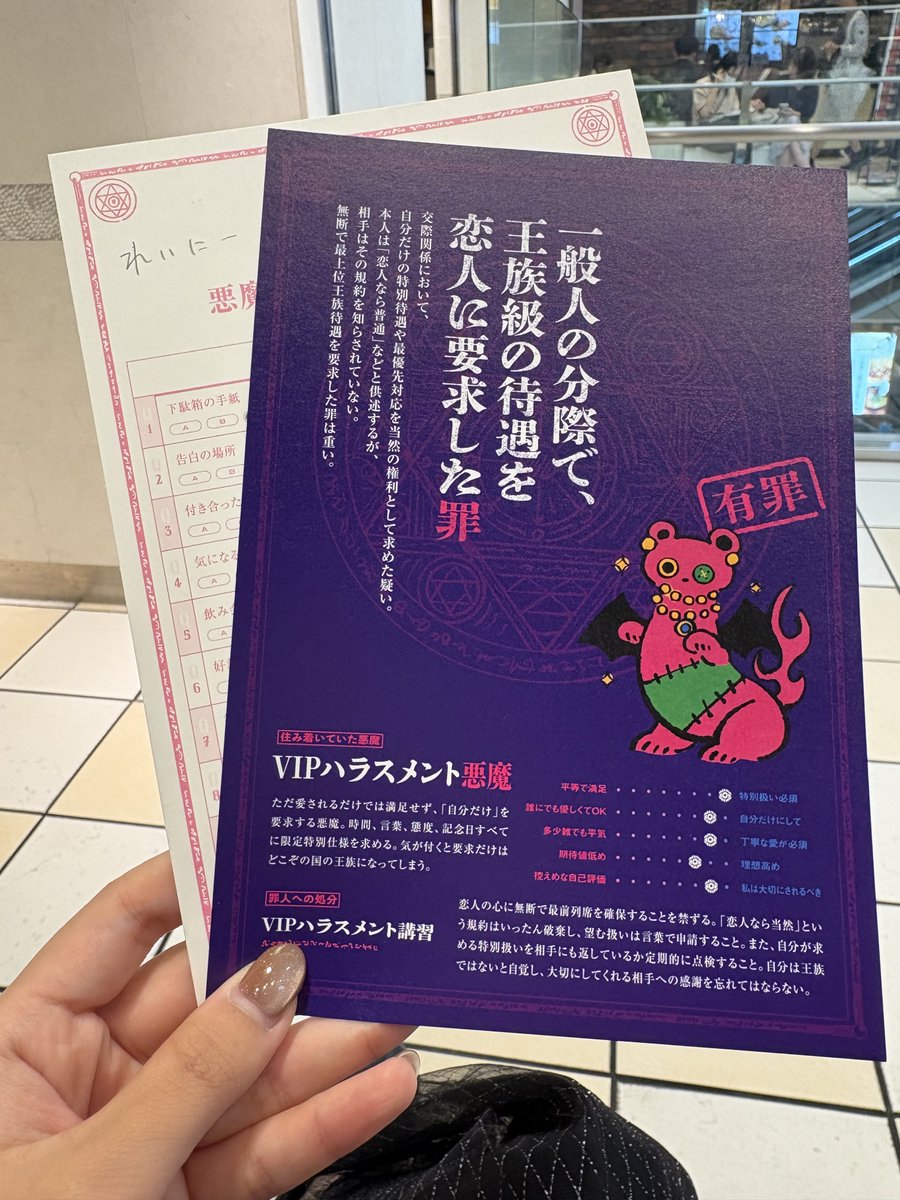 れいにー
悪魔
1
下駄箱の手紙
A
B
2
告白の場所
A
B
3
付き合った
A
4
気になる
A
5
飲み
A
6
好
7
8
一般人の分際で、
王族級の待遇を
恋人に要求した罪
交際関係において、
自分だけの特別待遇や最優先対応を当然の権利として求めた疑い。
本人は「恋人なら普通」などと供述するが、
相手はその規約を知らされていない。
無断で最上位王族待遇を要求した罪は重い。
有罪
住み着いていた悪魔
VIPハラスメント悪魔
ただ愛されるだけでは満足せず、「自分だけ」を
要求する悪魔。時間、言葉、態度、記念日すべて
に限定特別仕様を求める。気が付くと要求だけは
どこぞの国の王族になってしまう。
平等で満足 特別扱い必須
誰にでも優しくてOK 自分だけにして
多少雑でも平気 丁寧な愛が必須
期待値低め 理想高め
控えめな自己評価 私は大切にされるべき
罪人への処分
VIPハラスメント講習
恋人の心に無断で最前列席を確保することを禁ずる。「恋人なら当然」とい
う規約はいったん破棄し、望む扱いは言葉で申請すること。また、自分が求
める特別扱いを相手にも返しているか定期的に点検すること。自分は王族
ではないと自覚し、大切にしてくれる相手への感謝を忘れてはならない。